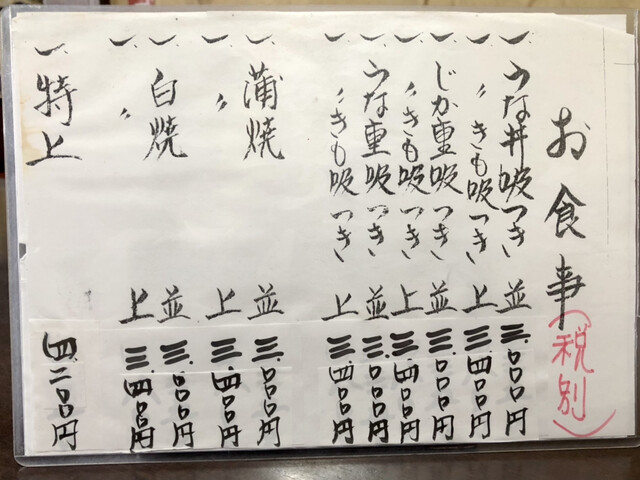 お食事(税別)
一、うな丼吸つき 並 三、〇〇〇円
一、〃きも吸つき 上 三、四〇〇円
一、じか重吸つき 並 三、〇〇〇円
一、〃きも吸つき 上 三、四〇〇円
一、うな重吸つき 並 三、〇〇〇円
一、〃きも吸つき 上 三、四〇〇円
一、蒲焼 並 三、〇〇〇円
一、〃 上 三、四〇〇円
一、白焼 並 三、〇〇〇円
一、〃 上 三、四〇〇円
一、特上 四、二〇〇円